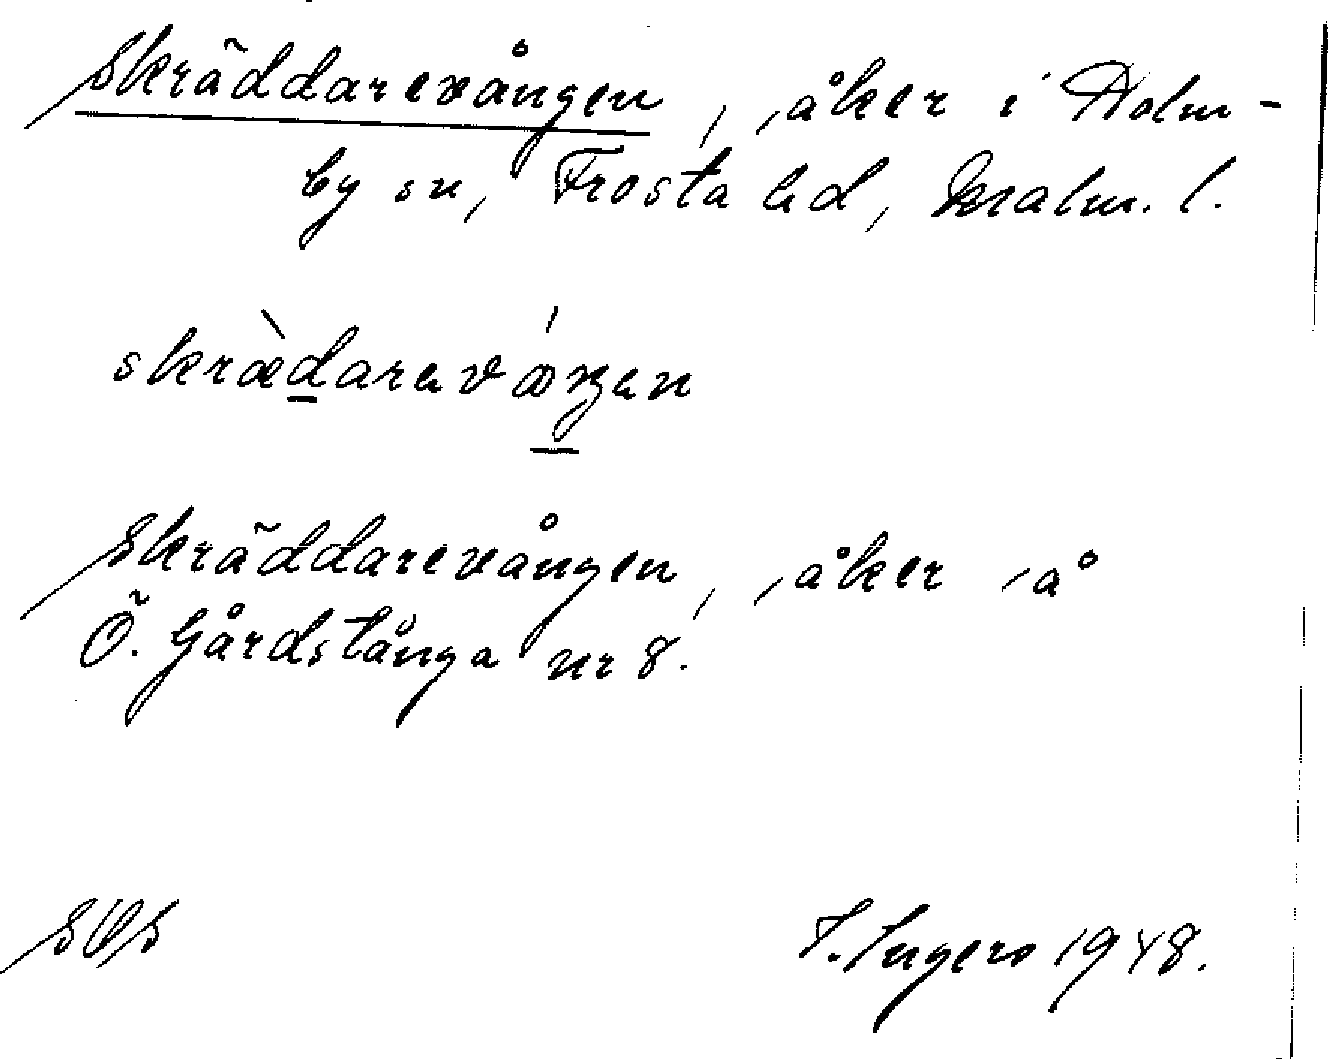 Skräddarevången, åker i Holm-
by sn, Frosta hd, Malm. l.
skræ̀daravåŋen
Skräddarevången, åker på
Ö. Gårdstånga nr 8.
I. Ingers 1948.